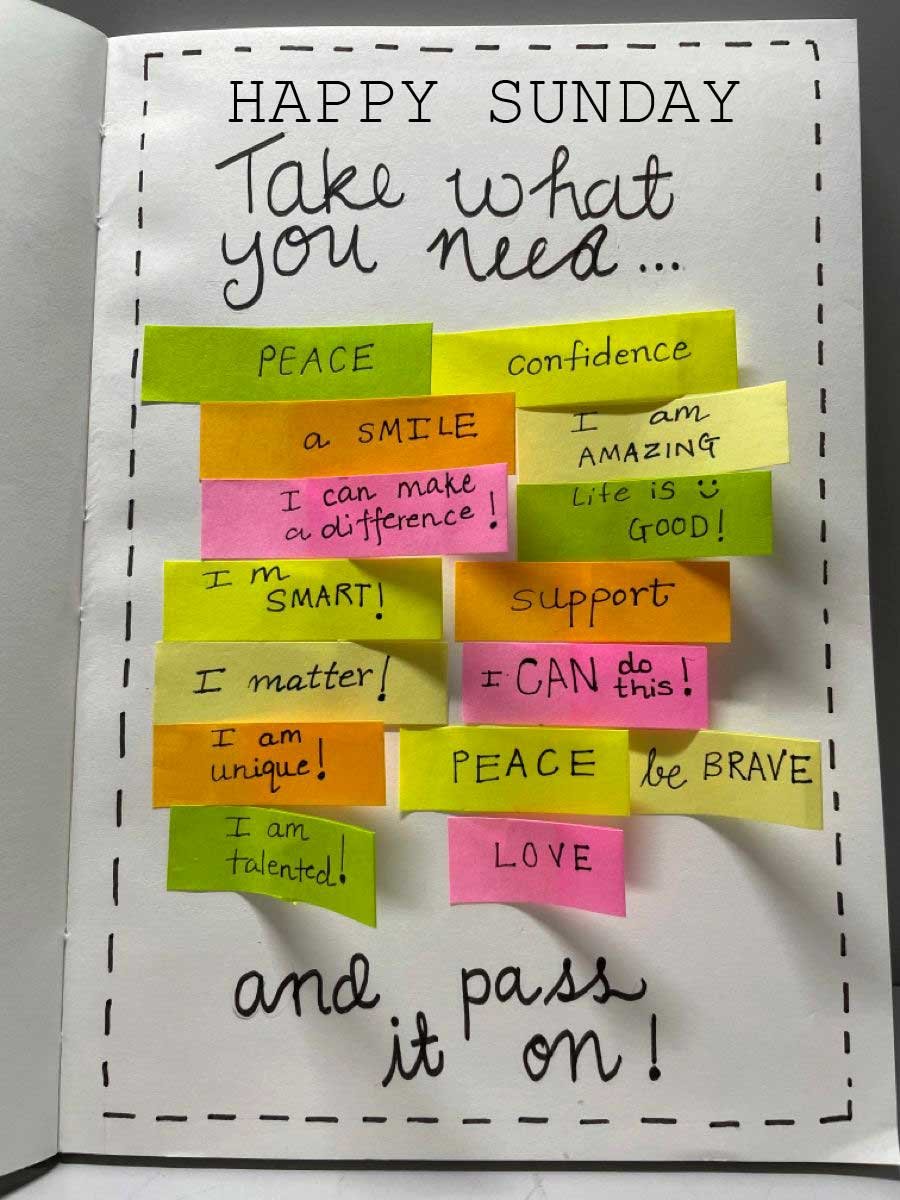 HAPPY SUNDAY
Take what
you need...
PEACE
confidence
a SMILE
I am
AMAZING
I can make
a difference!
Life is :)
GOOD!
I m
SMART!
support
I matter!
I CAN do
this!
I am
unique!
PEACE
be BRAVE
I am
talented!
LOVE
and pass
it on!